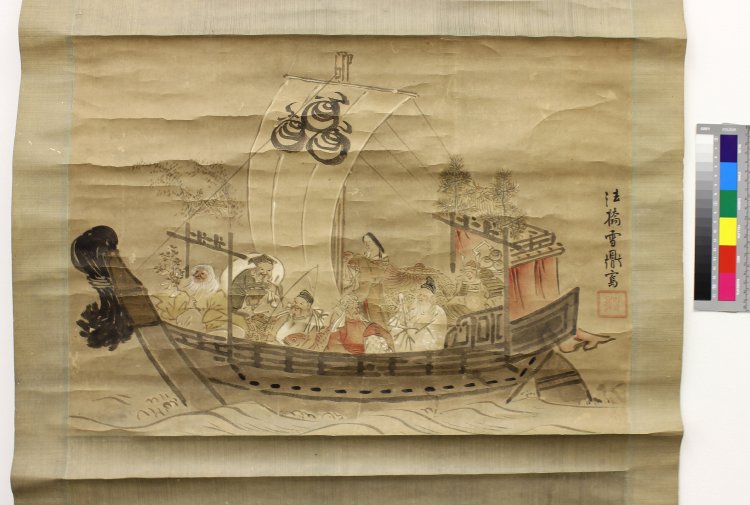 法橋雪鼎寫